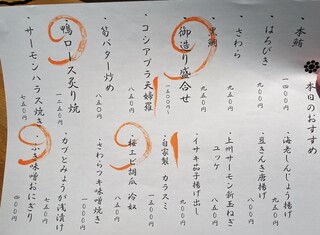 本日のおすすめ
・本鮪 一四〇〇円
・はるびき 九五〇円
・さわら 九五〇円
・黒鯛 九五〇円
・御造り盛合せ 一五〇〇円〜
・コシアブラ天婦羅 八五〇円
・筍バター炒め 八五〇円
・鴨ロース炙り焼 一二五〇円
・サーモンハラス焼き 七五〇円
・海老しんじょう揚げ 九五〇円
・豆きんき唐揚げ 九五〇円
・上州サーモン新玉ねぎ
ユッケ 九五〇円
・イサキ茄子揚げ出し 八五〇円
・自家製 カラスミ 八五〇円
・桜エビ胡瓜 冷奴 八五〇円
・さわらフキ味噌焼き 一〇〇〇円
・カツとみょうが浅漬け 七五〇円
・ふき味噌おにぎり 四〇〇円